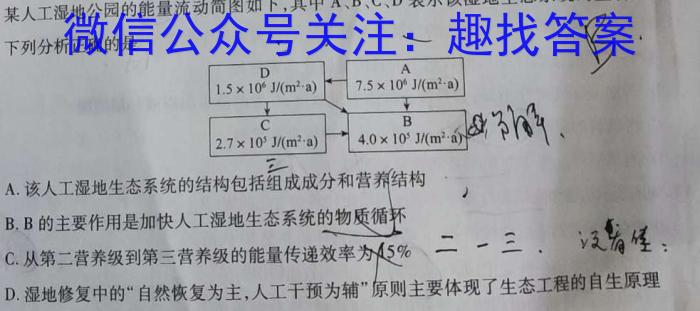 某人工湿地公园的能量流动简图如下,其中A、B、C、D表示该湿地生态系
微信公众号关注：趣找答案
下列分析正确的是
D
1.5 × 10⁶ J/(m²·a)
A
7.5 × 10⁶ J/(m²·a)
C
2.7 × 10⁵ J/(m²·a)
B
4.0 × 10⁵ J/(m²·a)
三
A.该人工湿地生态系统的结构包括组成成分和营养结构
B.B的主要作用是加快人工湿地生态系统的物质循环
C.从第二营养级到第三营养级的能量传递效率为15% 二 一 三 .
D.湿地修复中的“自然恢复为主,人工干预为辅”原则主要体现了生态工程的自生原理